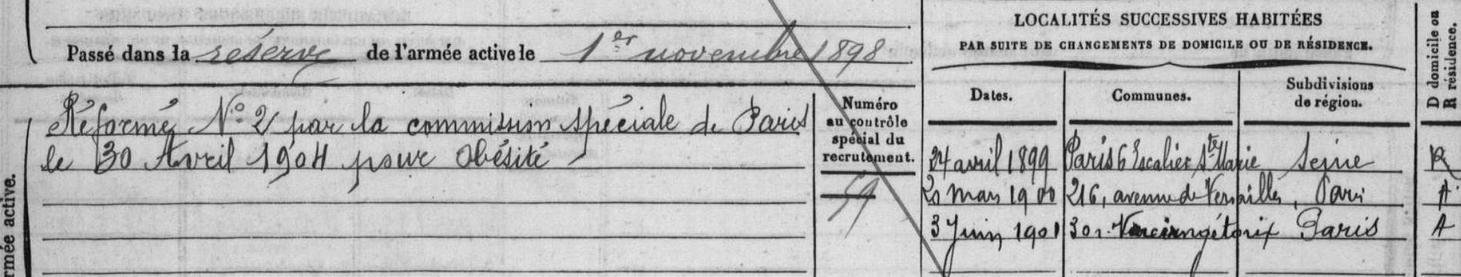 Passé dans la réserve de l'armée active le 1er novembre 1898
Réformé No 2 par la commission spéciale de Paris
le 30 Avril 1904 pour obésité
Numéro
au contrôle
spécial du
recrutement.
59
LOCALITÉS SUCCESSIVES HABITÉES
PAR SUITE DE CHANGEMENTS DE DOMICILE OU DE RÉSIDENCE.
Dates. Communes. Subdivisions de région. D domicile ou R résidence.
24 avril 1899 Paris 6 Escalier Ste Marie Seine R
20 mars 1900 216, avenue de Versailles, Paris
3 Juin 1901 30 r. Vercingétorix Paris
rmée active.